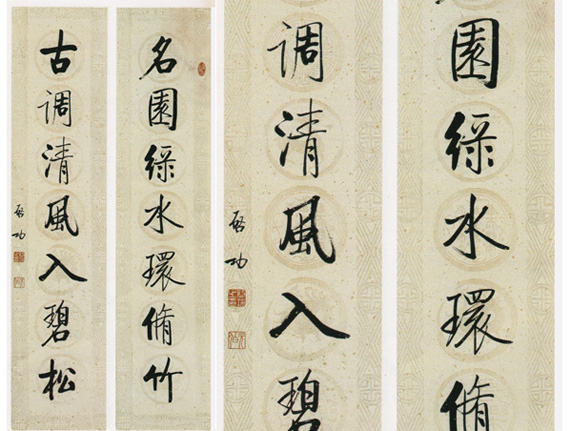 名園綠水環脩竹
古調清風入碧松
啟功
園綠水環脩
調清風入碧
啟功